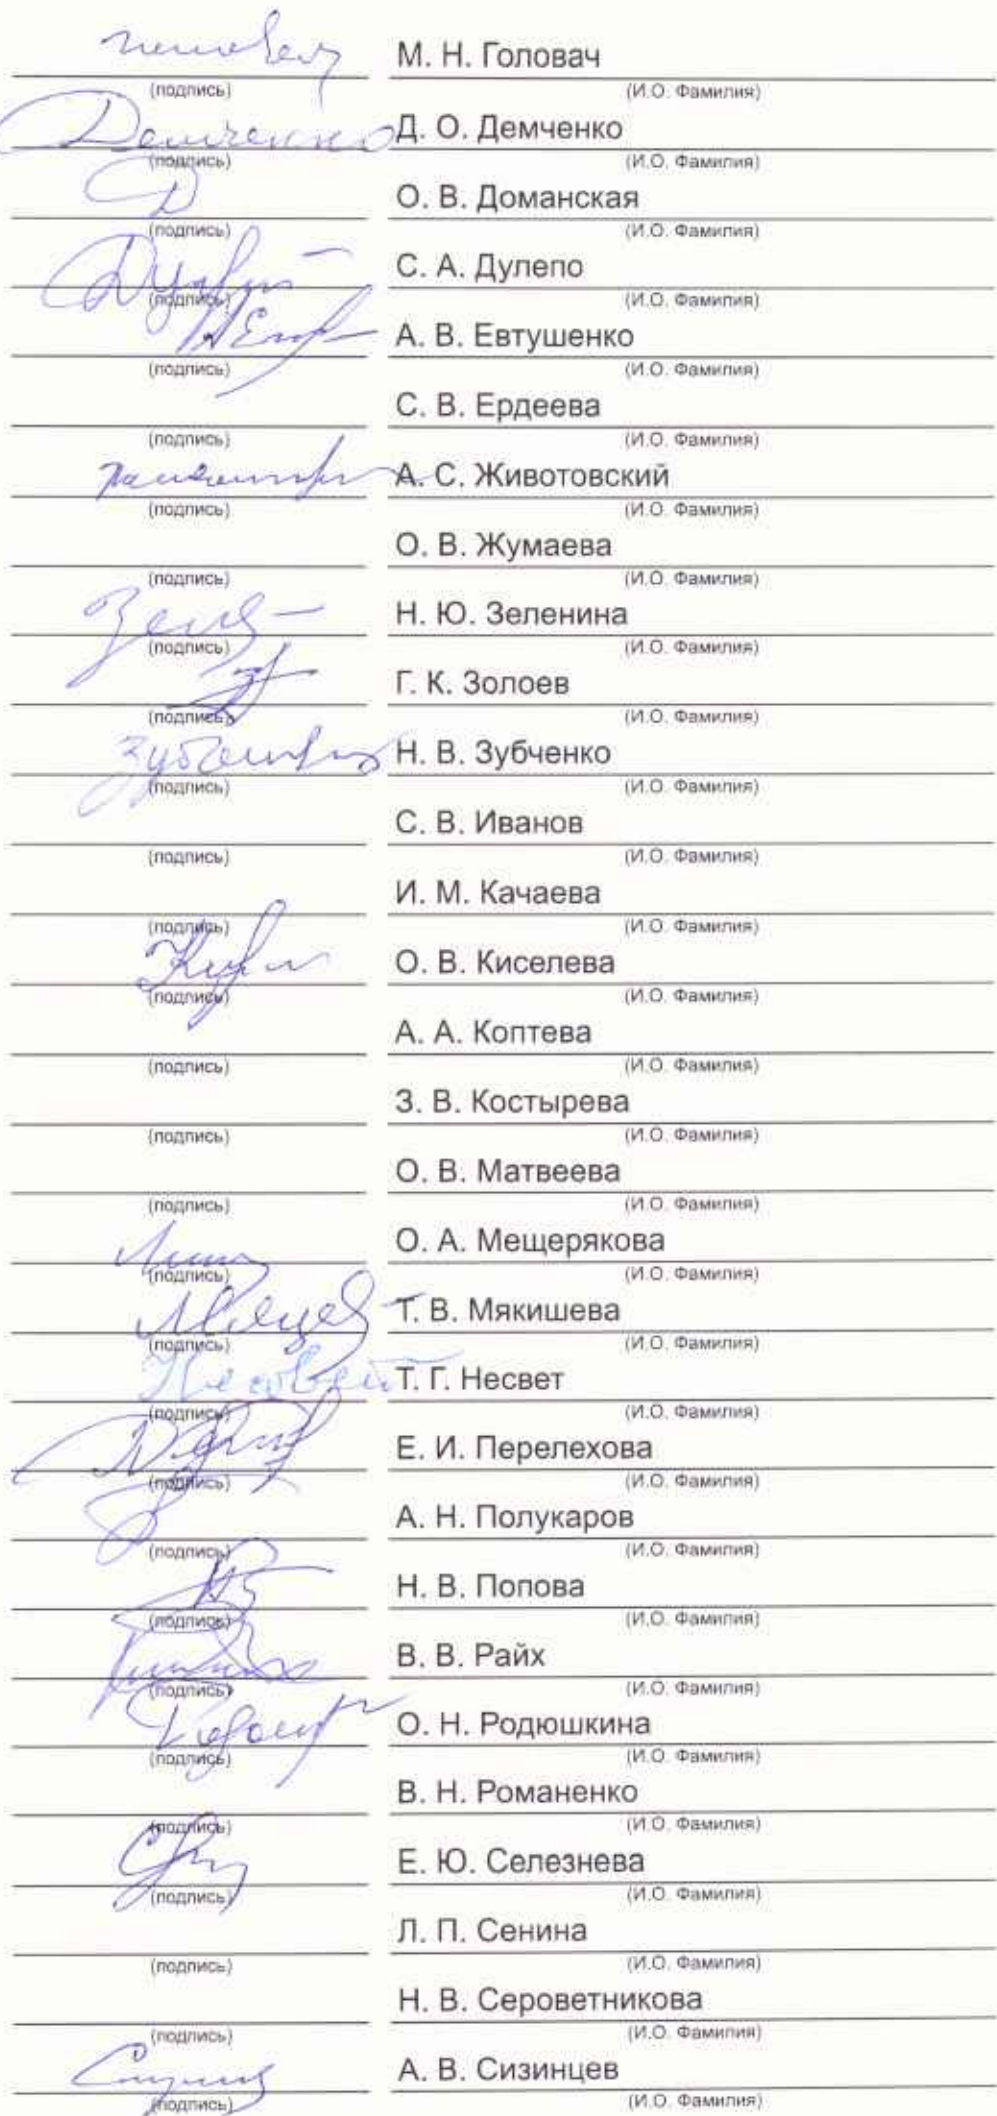 М. Н. Головач
(подпись) (И.О. Фамилия)
Демченко Д. О. Демченко
(подпись) (И.О. Фамилия)
О. В. Доманская
(подпись) (И.О. Фамилия)
С. А. Дулепо
(подпись) (И.О. Фамилия)
А. В. Евтушенко
(подпись) (И.О. Фамилия)
С. В. Ердеева
(подпись) (И.О. Фамилия)
А. С. Животовский
(подпись) (И.О. Фамилия)
О. В. Жумаева
(подпись) (И.О. Фамилия)
Н. Ю. Зеленина
(подпись) (И.О. Фамилия)
Г. К. Золоев
(подпись) (И.О. Фамилия)
Н. В. Зубченко
(подпись) (И.О. Фамилия)
С. В. Иванов
(подпись) (И.О. Фамилия)
И. М. Качаева
(подпись) (И.О. Фамилия)
О. В. Киселева
(подпись) (И.О. Фамилия)
А. А. Коптева
(подпись) (И.О. Фамилия)
З. В. Костырева
(подпись) (И.О. Фамилия)
О. В. Матвеева
(подпись) (И.О. Фамилия)
О. А. Мещерякова
(подпись) (И.О. Фамилия)
Т. В. Мякишева
(подпись) (И.О. Фамилия)
Несвет Т. Г. Несвет
(подпись) (И.О. Фамилия)
Е. И. Перелехова
(подпись) (И.О. Фамилия)
А. Н. Полукаров
(подпись) (И.О. Фамилия)
Н. В. Попова
(подпись) (И.О. Фамилия)
В. В. Райх
(подпись) (И.О. Фамилия)
О. Н. Родюшкина
(подпись) (И.О. Фамилия)
В. Н. Романенко
(подпись) (И.О. Фамилия)
Е. Ю. Селезнева
(подпись) (И.О. Фамилия)
Л. П. Сенина
(подпись) (И.О. Фамилия)
Н. В. Сероветникова
(подпись) (И.О. Фамилия)
А. В. Сизинцев
(подпись) (И.О. Фамилия)